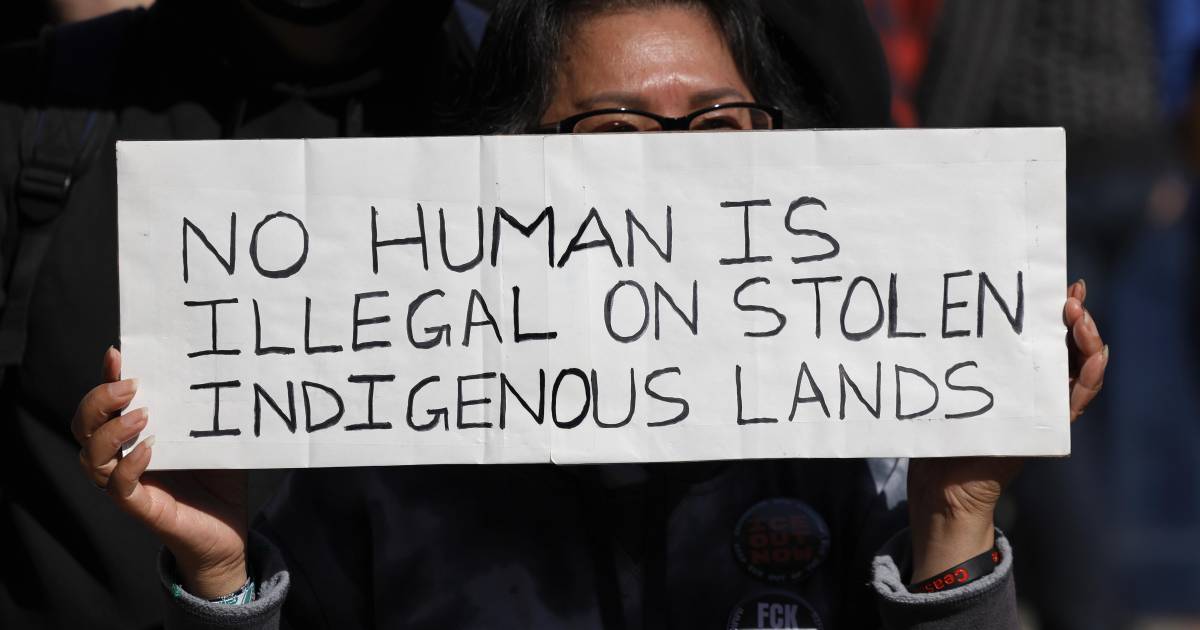 NO HUMAN IS
ILLEGAL ON STOLEN
INDIGENOUS LANDS
ICE
OUT
NOW
FCK
Ceas